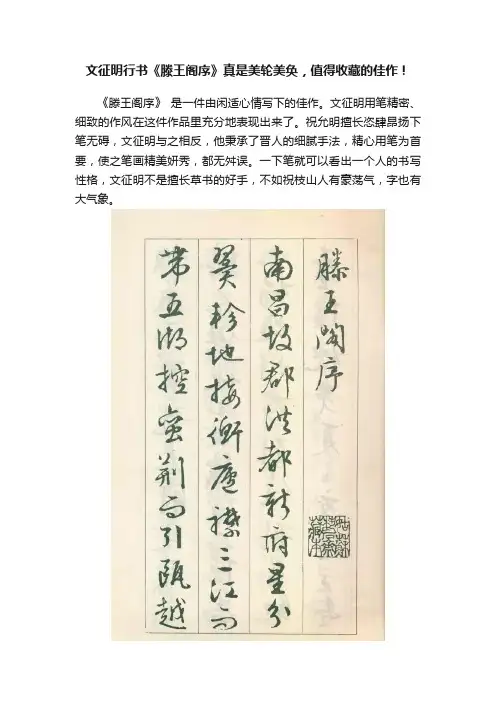 文征明行书《滕王阁序》真是美轮美奂，值得收藏的佳作！
《滕王阁序》 是一件由闲适心情写下的佳作。文征明用笔精密、
细致的作风在这件作品里充分地表现出来了。祝允明擅长恣肆昂扬下
笔无碍，文征明与之相反，他秉承了晋人的细腻手法，精心用笔为首
要，使之笔画精美妍秀，都无舛误。一下笔就可以看出一个人的书写
性格，文征明不是擅长草书的好手，不如祝枝山人有豪荡气，字也有
大气象。
滕王閣序
南昌故郡洪都新府星分
翼軫地接衡廬襟三江而
帶五湖控蠻荊而引甌越